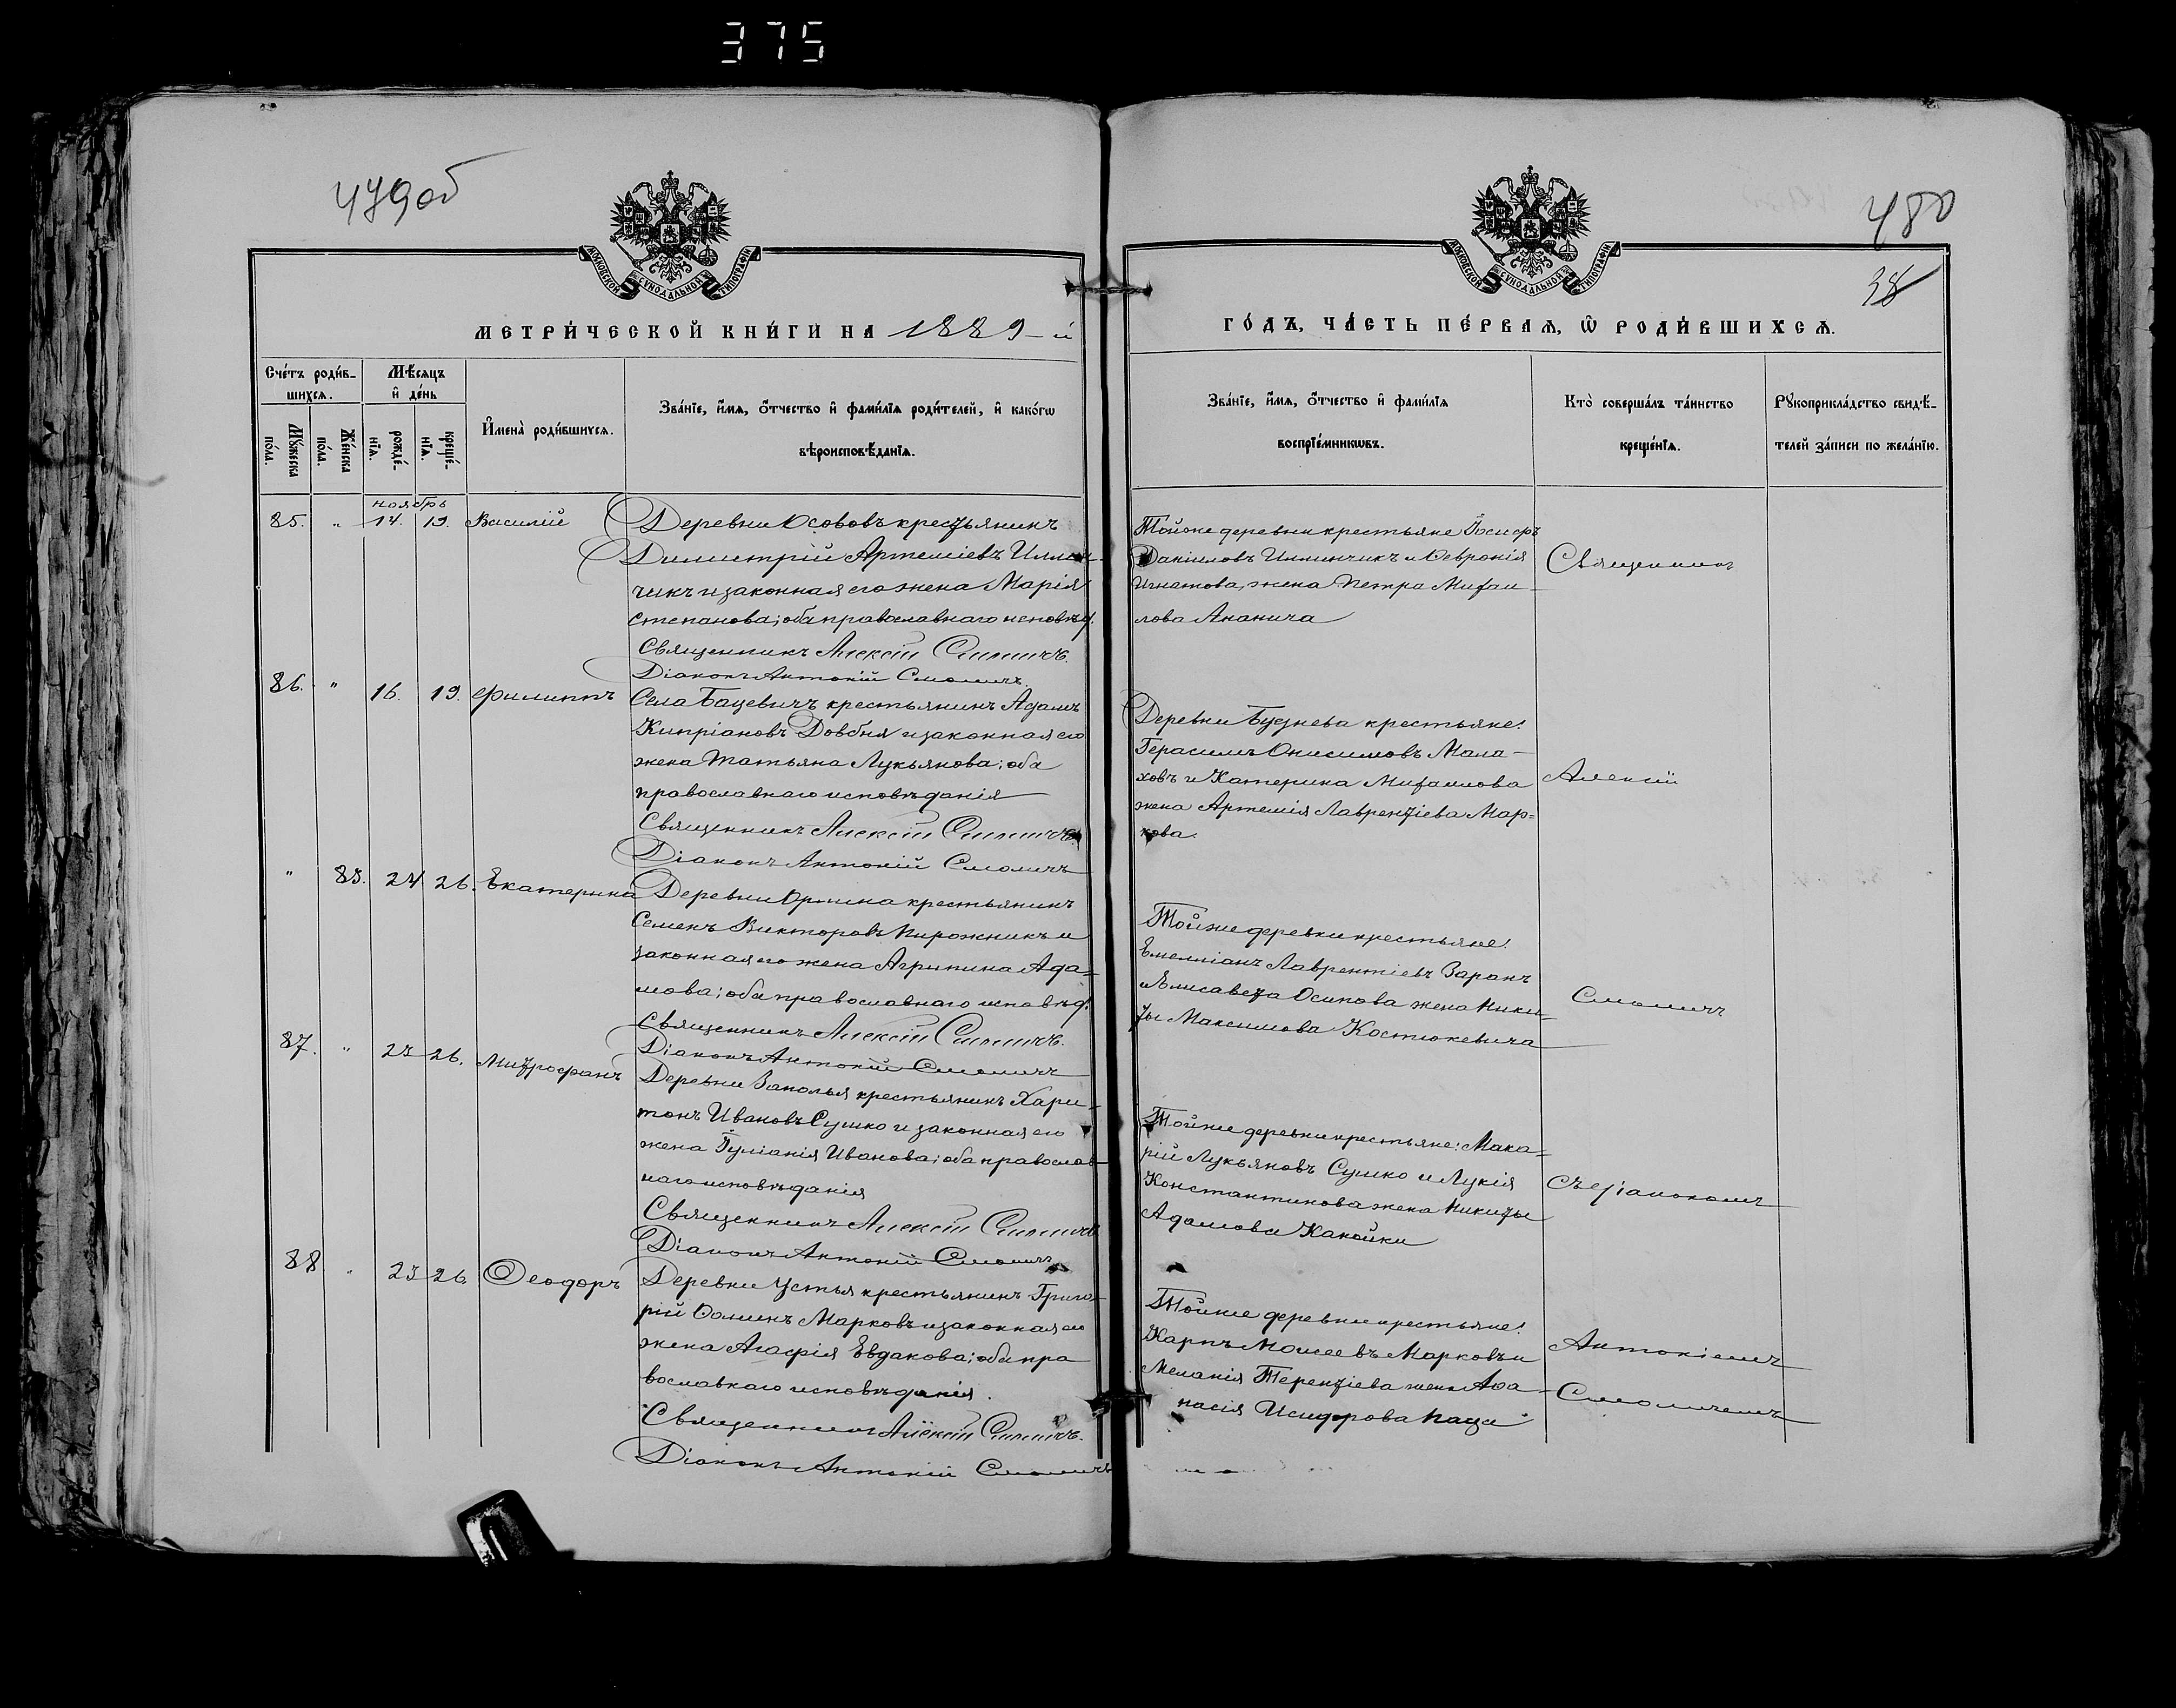 375
479об
480
38
МОСКОВСКОЙ СѴНОДАЛЬНОЙ ТИПОГРАФІИ
МОСКОВСКОЙ СѴНОДАЛЬНОЙ ТИПОГРАФІИ
МЕТРИ́ЧЕСКОЙ КНИ́ГИ НА 1889-й
ГО́ДЪ, ЧА́СТЬ ПЕ́РВАѦ, Ѡ҆ РОДИ́ВШИХСѦ.
Сче́тъ роди́в-
шихсѧ.
Мꙋ́жеска
по́ла.
Же́нска
по́ла.
Мѣ́сѧцъ
и҆ де́нь
рожде́-
нїѧ.
креще́-
нїѧ.
И҆мена̀ роди́вшихсѧ.
Зва́нїе, и҆́мѧ, ѻ҆́тчество и҆ фами́лїѧ роди́телей, и҆ како́гѡ
вѣроисповѣ́данїѧ.
Зва́нїе, и҆́мѧ, ѻ҆́тчество и҆ фами́лїѧ
воспрїе́мникѡвъ.
Кто̀ соверша́лъ та́инство
креще́нїѧ.
Рꙋкоприкла́дство свидѣ́-
телей за́писи по жела́нїю.
ноябрь
85. " 14. 19. Василій
Деревни Осововъ крестьянинъ
Димитрій Артеміевъ Иллюк-
чикъ и законная его жена Марія
Степанова; оба православнаго исповѣд.
Священникъ Алексій Смоличъ.
Діаконъ Антоній Смоличъ.
Тойже деревни крестьяне Іосифъ
Даніиловъ и Февронія
Игнатова, жена Петра Михаи-
лова Ананича
Священникъ
86. " 16. 19. Филиппъ
Села Бацевичъ крестьянинъ Адамъ
Кипріановъ Довбня и законная его
жена Татьяна Лукьянова; оба
православнаго исповѣданія
Священникъ Алексій Смоличъ.
Діаконъ Антоній Смоличъ
Деревни Буднева крестьяне:
Герасимъ Онисимовъ Мала-
ховъ и Катерина Михаилова
жена Артемія Лаврентіева Мар-
кова.
Алексій
" 83. 24 26. Екатерина
Деревни крестьянинъ
Семенъ Викторовъ Пирожникъ и
законная его жена Агрипина Ада-
мова; оба православнаго исповѣд.
Священникъ Алексій Смоличъ.
Діаконъ Антоній Смоличъ
Тойже деревни крестьяне:
Емелліанъ Лаврентіевъ Заранъ
и Елисавета Осипова жена Ники-
ты Максимова Костюкевича
Смоличъ
87. " 23 26. Митрофанъ
Деревни Заполья крестьянинъ Хари-
тонъ Ивановъ Сушко и законная его
жена Іуліанія Иванова; оба православ-
наго исповѣданія
Священникъ Алексій Смоличъ
Діаконъ Антоній Смоличъ
Тойже деревни крестьяне: Мака-
рій Лукьяновъ Сушко и Лукія
Константинова жена Никиты
Адамова Канойки
съ діакономъ
88 " 23 26. Ѳеодоръ
Деревни Устья крестьянинъ Григо-
рій Ѳоминъ Марковъ и законная его
жена Агафія Евдакова; оба пра
вославнаго исповѣданія.
Священникъ Алексій Смоличъ.
Діаконъ Антоній Смоличъ
Тойже деревни крестьяне:
Карпъ Моисеевъ Марковъ и
Меланія Терентіева жена Аѳа-
насія Исидорова Паца
Антоніемъ
Смоличемъ